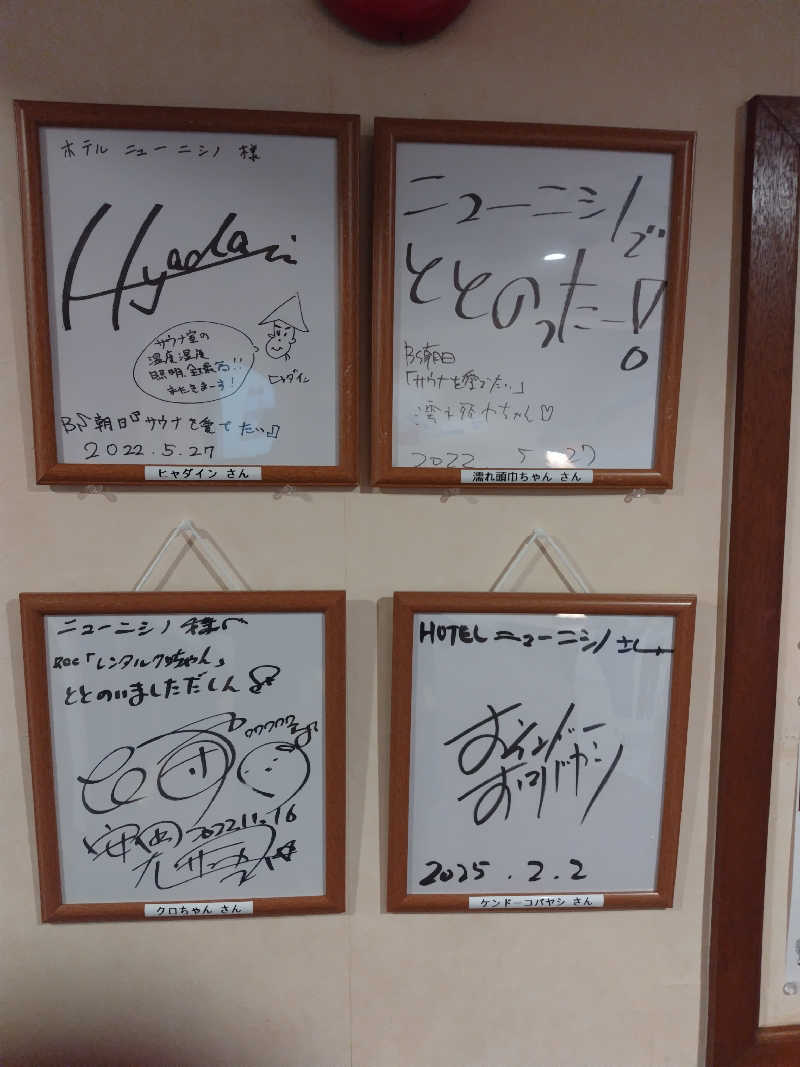 ホテル ニューニシノ 様
Hyadain
サウナ室の
温度湿度
照明、全最高!!
またきまーす!
ヒャダイン
BS朝日『サウナを愛でたい』
2022.5.27
ヒャダイン さん
ニューニシノで
ととのったー!
BS朝日
「サウナを愛でたい」
濡れ頭巾ちゃん♡
2022 5 27
濡れ頭巾ちゃん さん
ニューニシノ 様
RCC「レンタルクロちゃん」
ととのいましただしん
ワワワワ
2022.11.16
クロちゃん さん
HOTEL ニューニシノ さん
2025.2.2
ケンドーコバヤシ さん